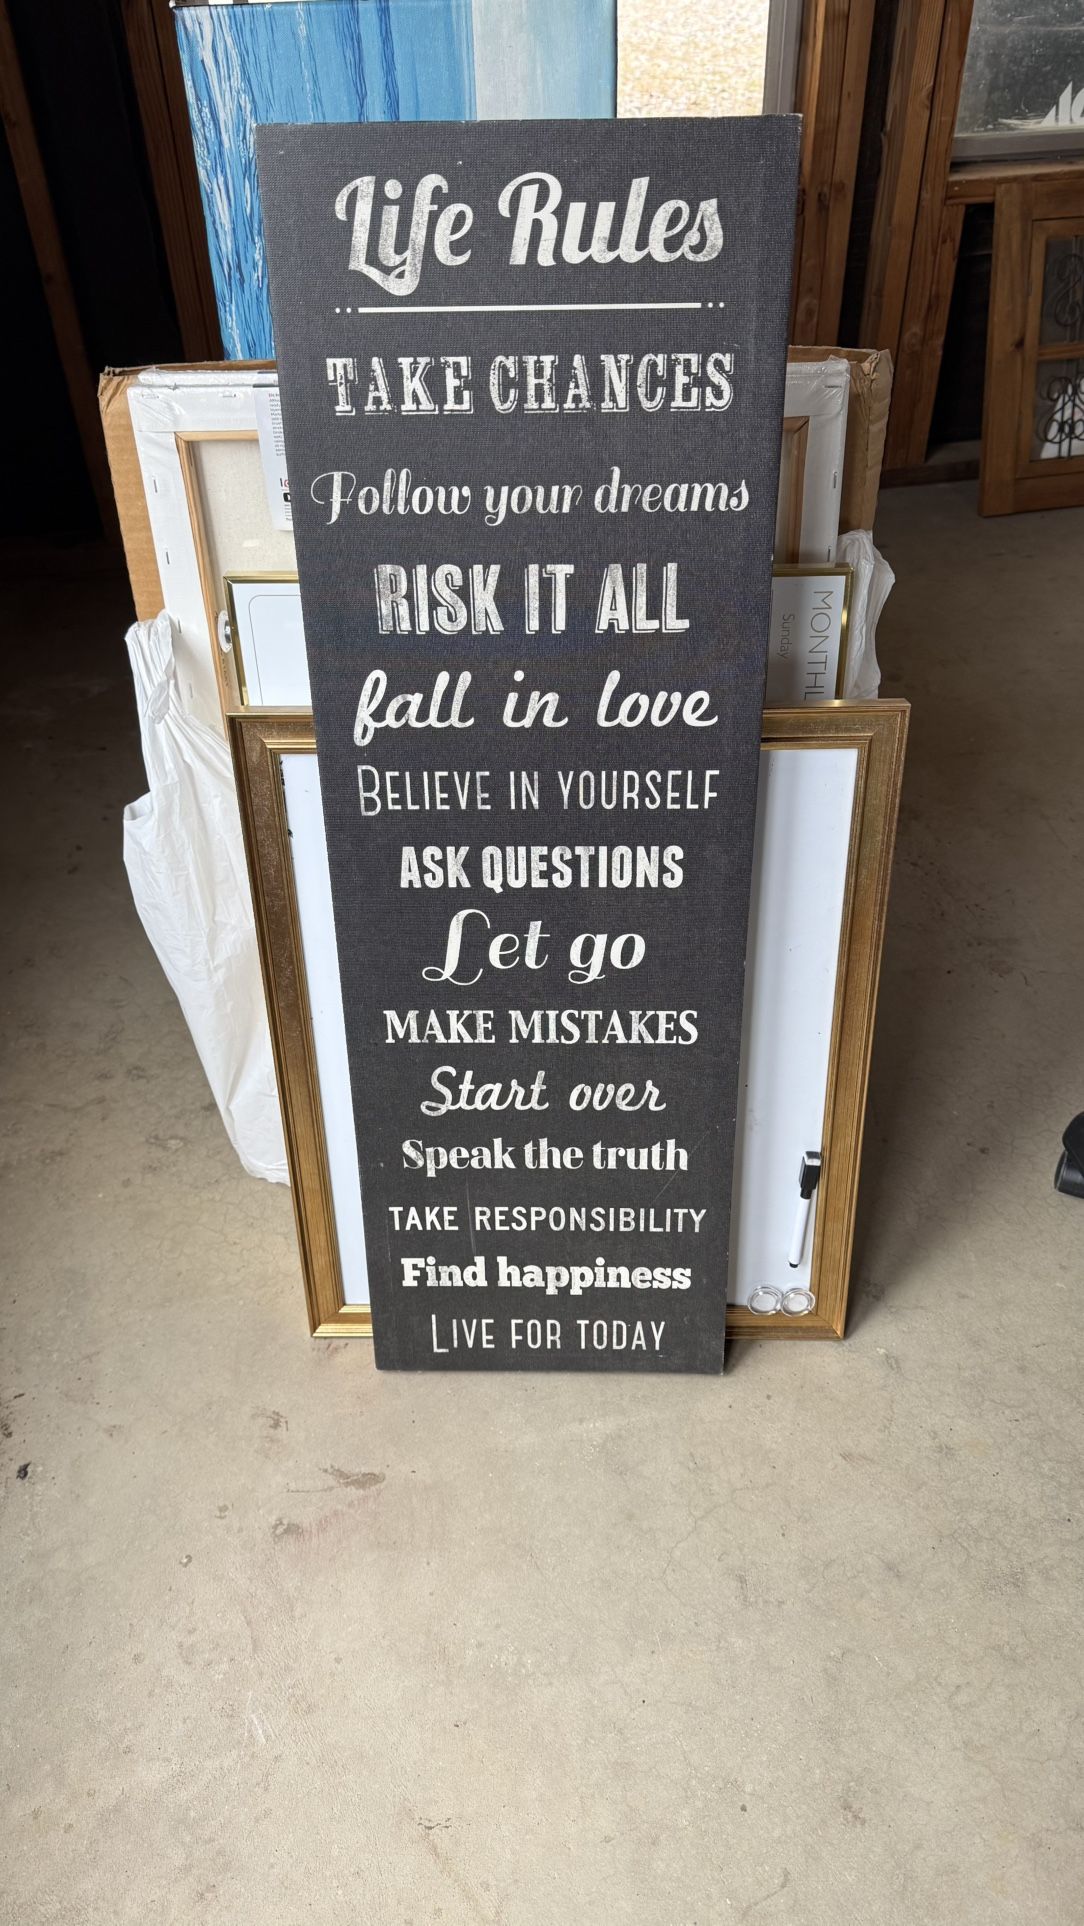 Life Rules
TAKE CHANCES
Follow your dreams
RISK IT ALL
fall in love
BELIEVE IN YOURSELF
ASK QUESTIONS
Let go
MAKE MISTAKES
Start over
Speak the truth
TAKE RESPONSIBILITY
Find happiness
LIVE FOR TODAY
MONTHL
Sunday